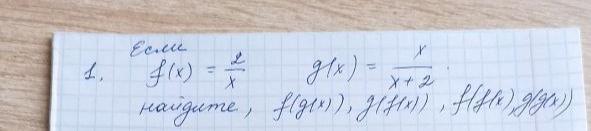 Если
1. f(x) = 2/x g(x) = x/(x+2).
найдите, f(g(x)), g(f(x)), f(f(x), g(g(x))